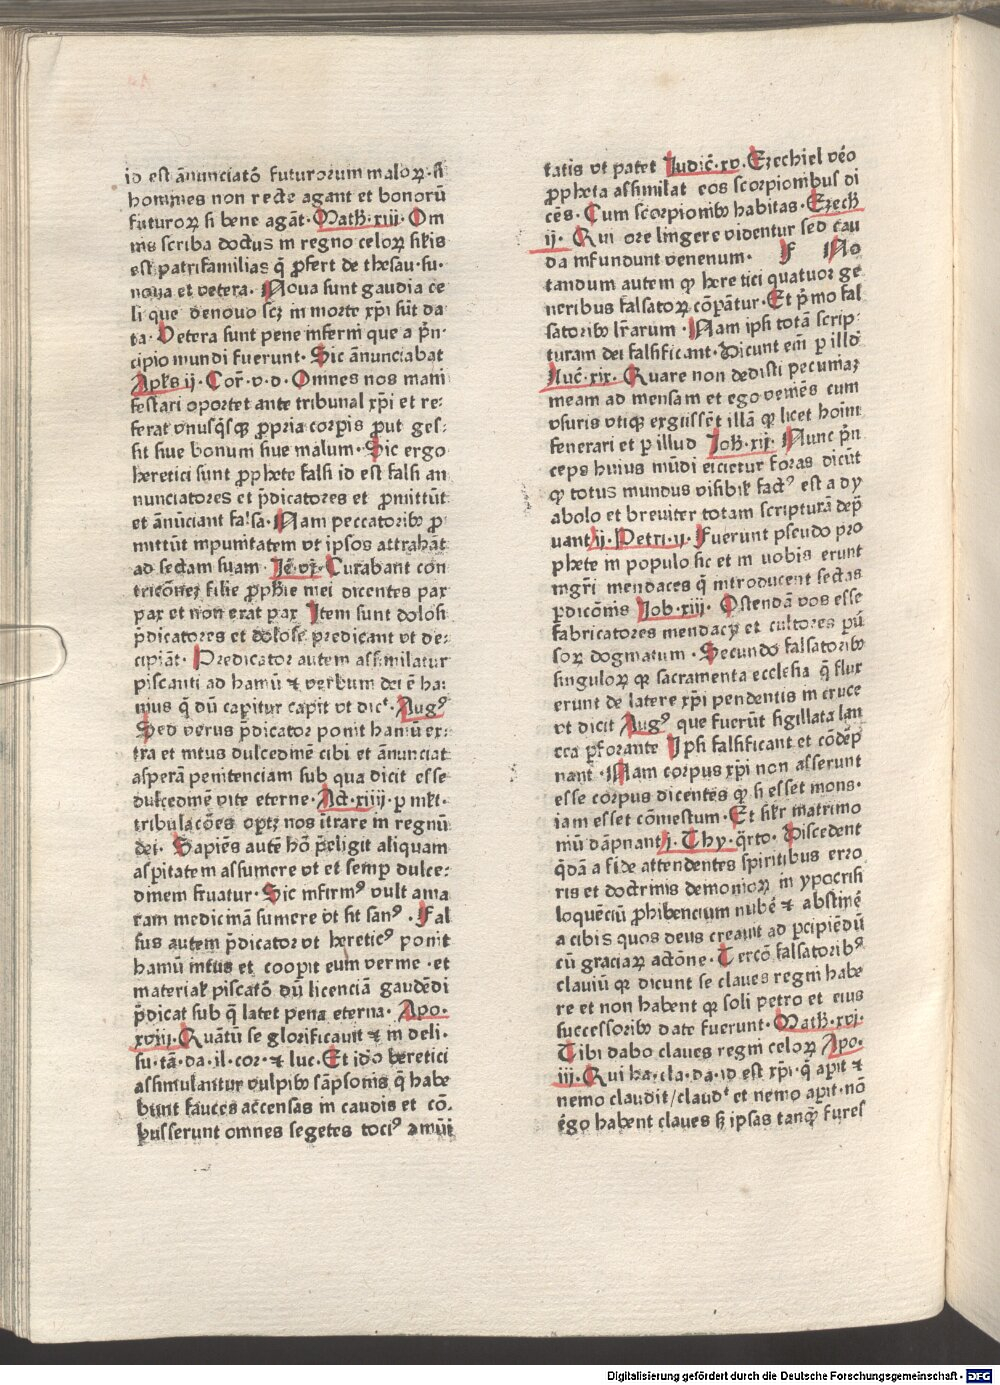 id est ānunciatō futurorum maloꝝ·si
homines non recte agant et bonorū
futuroꝝ si bene agāt·Math̄·xiii·Om
nis scriba doctus in regno celoꝝ silis
est patrifamilias q̄ ꝓfert de thesau·su·
noua et vetera·Noua sunt gaudia ce
li que denouo scꝫ in morte xp̄i sūt da
ta·Vetera sunt pene inferni que a p̄n-
cipio mundi fuerunt·Sic ānunciabat
Apl̄s ii·Cor̄·v·d·Omnes nos mani
festari oportet ante tribunal xp̄i et re-
ferat vnusq̄sqꝫ ꝓpria corꝑis ꝓut ges-
sit siue bonum siue malum·Sic ergo
heretici sunt ꝓphete falsi id est falsi an
nunciatores et p̄dicatores et ꝓmittūt
et ānūciant falsa·Nam peccatoribꝰ ꝓ
mittūt inpunitatem vt ipsos attrahāt
ad sectam suam·Je·vi·Curabant con
tricōneꝫ filie ꝓph̄ie mei dicentes pax
pax et non erat pax Item sunt dolosi
p̄dicatores et dolose predicant vt de-
cipiāt·Predicator autem assimilatur
piscanti ad hamū ⁊ verbum dei ē ha-
mus q̄ dū capitur capit vt dicᵗ·Augꝰ
Sed verus p̄dicator ponit hamū ex-
tra et intus dulcedinē cibi et ānunciat
asperā penitenciam sub qua dicit esse
dulcedinē vite eterne·Act̄·xiiii·ꝑ ml̄t·
tribulacōes optꝫ nos itrare in regnū
dei·Sapiēs autē hō p̄eligit aliquam
asꝑitatem assumere vt et semꝑ dulce-
dinem fruatur·Sic infirmꝰ vult ama
ram medicinā sumere vt sit sanꝰ·Fal
sus autem p̄dicator vt hereticꝰ ponit
hamū intus et cooꝑit eum verme·et
materiaꝉ piscatō dū licenciā gaudēdi
p̄dicat sub q̄ latet pena eterna·Apo·
xviii·Quātū se glorificauit ⁊ in deli·
su·tā·da·il·cor·⁊ luc·Et ido heretici
assimulantur vulpibꝰ sāpsonis q̄ habe
bunt fauces accensas in caudis et cō-
busserunt omnes segetes tociꝰ amūi
tatis vt patet Judic̄·xv·Ezechiel vēo
ꝓpheta assimilat eos scorpionibus di
cēs·Cum scorpionibꝰ habitas·Ezech̄
ii·Qui ore lingere videntur sed cau
da infundunt venenum·F No
tandum autem ꝙ heretici quatuor ge
neribus falsatoꝝ cōpāntur·Et p̄mo fal
satoribꝰ lr̄arum·Nam ipsi totā scrip-
turam dei falsificant·Dicunt em̄ ꝑ illd̄
Luc̄·xix·Quare non dedisti pecuniaꝫ
meam ad mensam et ego veniēs cum
vsuris vtiqꝫ exgissēt illā ꝙ licet hoīm
fenerari et ꝑ illud Joh̄·xii·Nunc p̄n
ceps huius mūdi eicietur foras dicūt
ꝙ totus mundus visibiꝉ factꝰ est a dy
abolo et breuiter totam scripturā dep̄
uant ii·Petri·ii·Fuerunt pseudo pro
phete in populo sic et in uobis erunt
mgr̄i mendaces q̄ introducent sectas
ꝑdicōnis Job·xiii·Ostendā vos esse
fabricatores mendacij et cultores ꝑū
soꝝ dogmatum·Secundo falsatoribꝰ
singuloꝝ ꝙ sacramenta ecclesia q̄ flux
erunt de latere xp̄i pendentis in cruce
vt dicit Augꝰ que fuerūt sigillata lan
cea ꝑforante Ipsi falsificant et cōdēp
nant·Nam corpus xp̄i non asserunt
esse corpus dicentes ꝙ si esset mons·
iam esset cōmestum·Et siꝉr matrimo
niū dāpnant j·Thy·q̄rto·Discedent
q̄dā a fide attendentes spiritibus erro
ris et doctrinis demonioꝝ in ypocrisi
loquēciū ꝓhibencium nubē ⁊ abstinē
a cibis quos deus creauit ad ꝑcipiēdū
cū graciaꝝ actōne·Tercō falsatoribꝰ
clauiū ꝙ dicunt se claues regni habe
re et non habent ꝙ soli petro et eius
successoribꝰ date fuerunt·Math̄·xvi·
Tibi dabo claues regni celoꝝ Apo·
iii·Qui ha·cla·da·id est xp̄i·q̄ aꝑit ⁊
nemo claudit/claudᵗ et nemo aꝑit·nō
ēgo habent claues sꝫ ipsas tanqꝫ fures
Digitalisierung gefördert durch die Deutsche Forschungsgemeinschaft - DFG